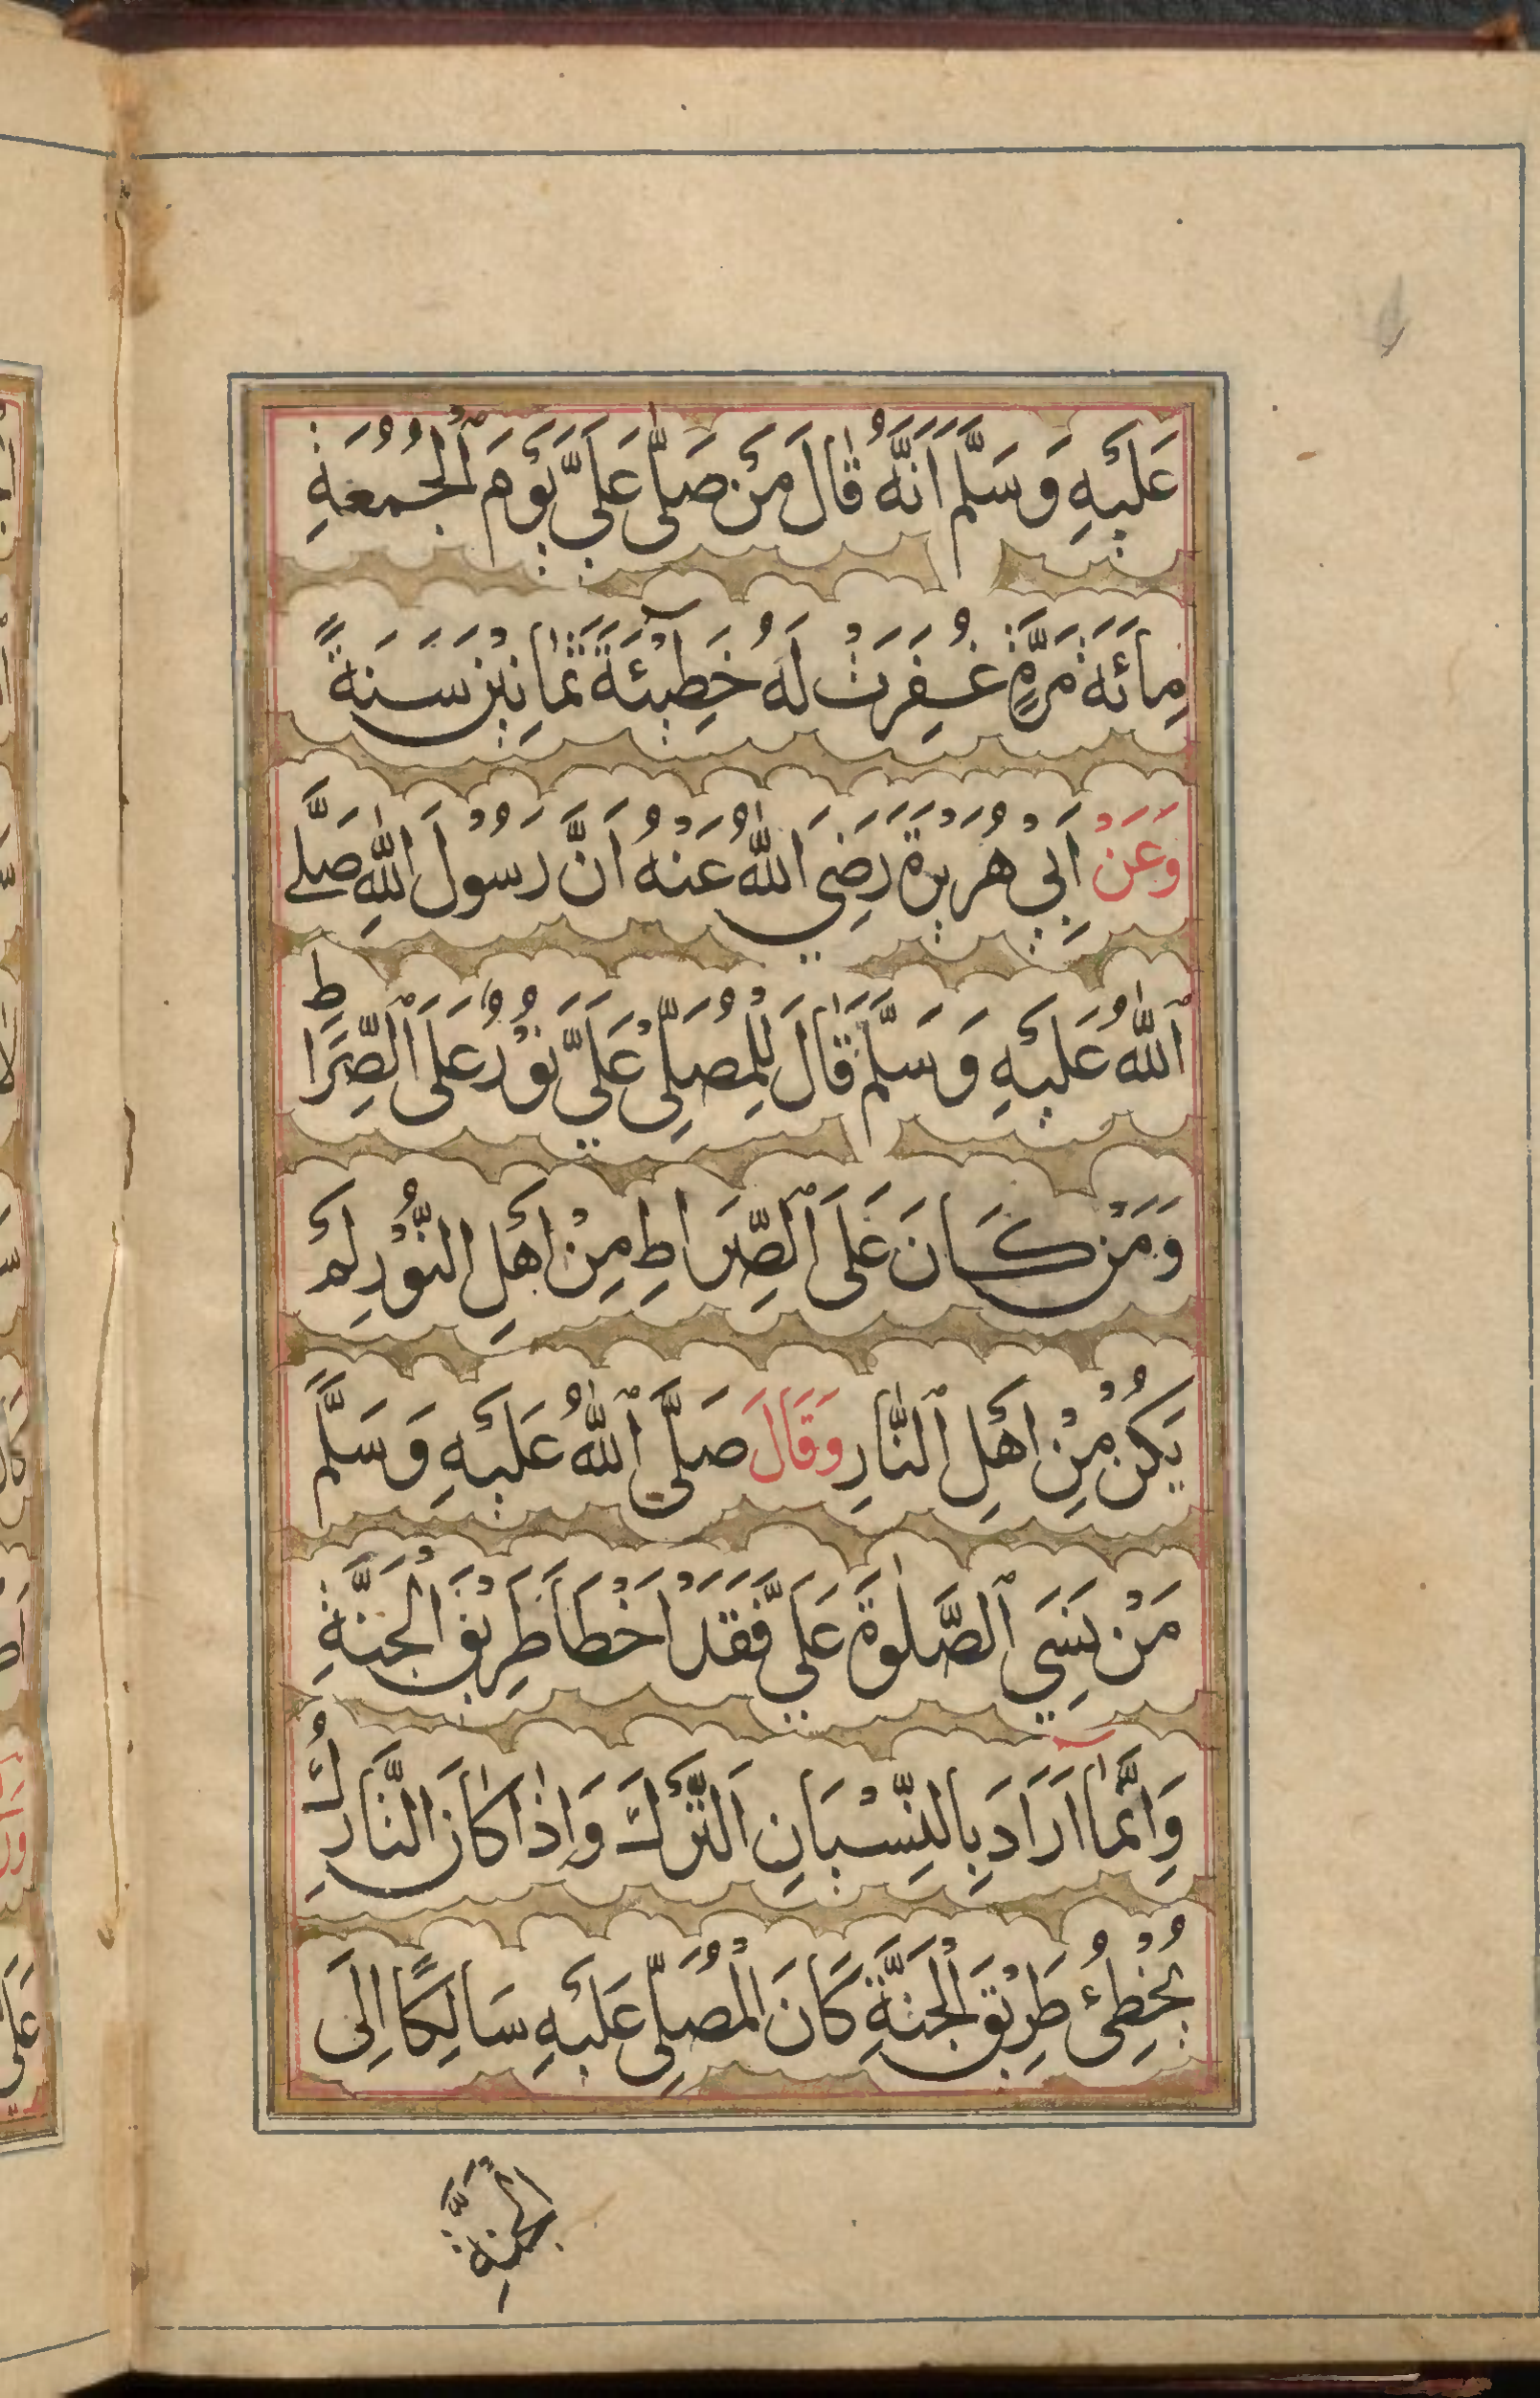 عَلَيْهِ وَسَلَّمَ اَنَّهُ قَالَ مَنْ صَلّٰى عَلَيَّ يَوْمَ ٱلْجُمُعَةِ
مِائَةَ مَرَّةٍ غُفِرَتْ لَهُ خَطِيْئَةُ ثَمَانِيْنَ سَنَةً
وَعَنْ اَبِيْ هُرَيْرَةَ رَضِيَ اللّٰهُ عَنْهُ اَنَّ رَسُوْلَ اللّٰهِ صَلَّى
ٱللّٰهُ عَلَيْهِ وَسَلَّمَ قَالَ لِلْمُصَلِّيْ عَلَيَّ نُوْرٌ عَلَى ٱلصِّرَاطِ
وَمَنْ كَانَ عَلَى ٱلصِّرَاطِ مِنْ اَهْلِ النُّوْرِ لَمْ
يَكُنْ مِنْ اَهْلِ ٱلنَّارِ وَقَالَ صَلَّى ٱللّٰهُ عَلَيْهِ وَسَلَّمَ
مَنْ نَسِيَ ٱلصَّلٰوةَ عَلَيَّ فَقَدْ اَخْطَاَ طَرِيْقَ الْجَنَّةِ
وَاِنَّمَا اَرَادَ بِالنِّسْيَانِ اَلتَّرْكَ وَاِذَا كَانَ التَّارِكُ
يُخْطِئُ طَرِيْقَ الْجَنَّةِ كَانَ الْمُصَلِّى عَلَيْهِ سَالِكًا اِلَى
الْجَنَّةِ